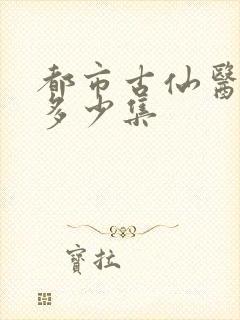 都市古仙醫
多少集
寶拉